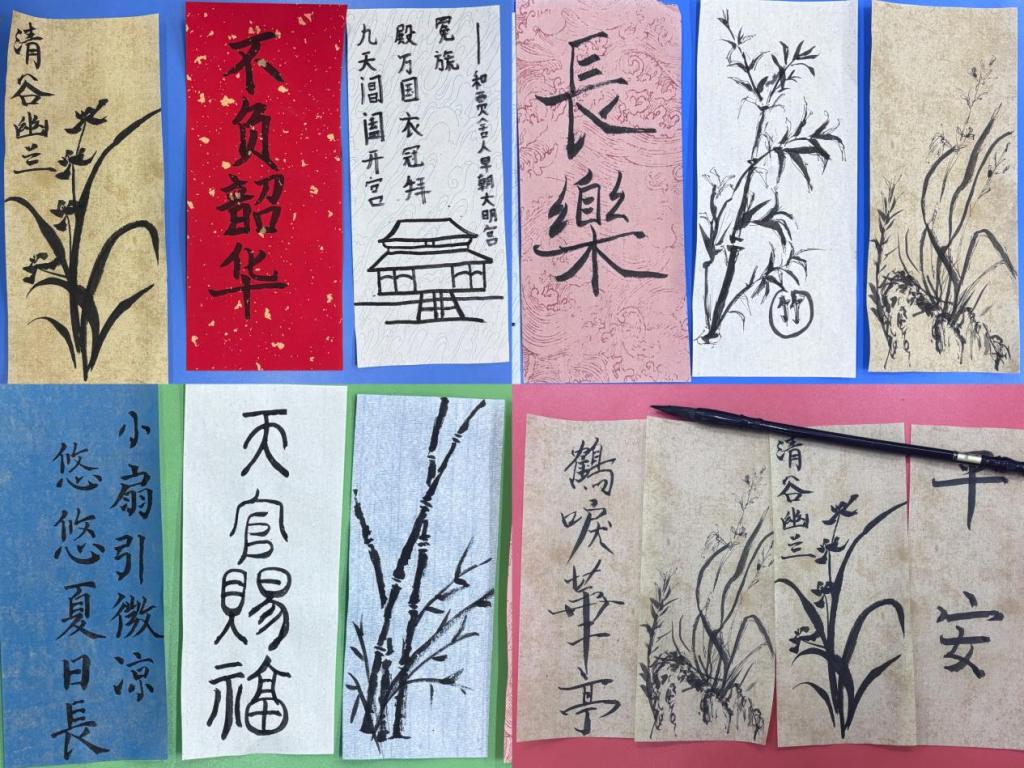 清谷幽兰
不负韶华
九天阊阖开宫
殿万国衣冠拜
冕旒
——和贾舍人早朝大明宫
長樂
竹
小扇引微凉
悠悠夏日長
天官賜福
鶴唳華亭
清谷幽兰
平安